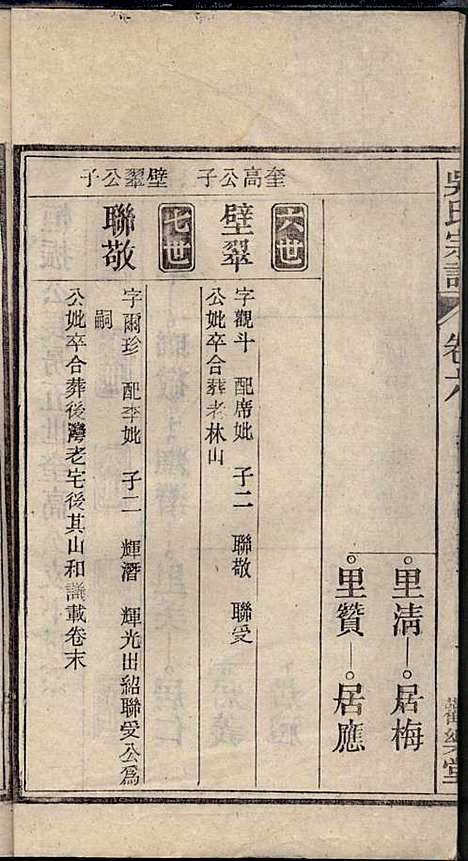 吳氏宗譜
卷六
觀樂堂
里清 居梅
里贊 居應
奎高公子
六世
璧翠
字觀斗 配席妣 子二 聯敬 聯受
公妣卒合葬老林山
璧翠公子
七世
聯敬
字爾珍 配李妣 子二 輝潛 輝光出紹聯受公為
嗣
公妣卒合葬後灣老宅後其山和議載卷末